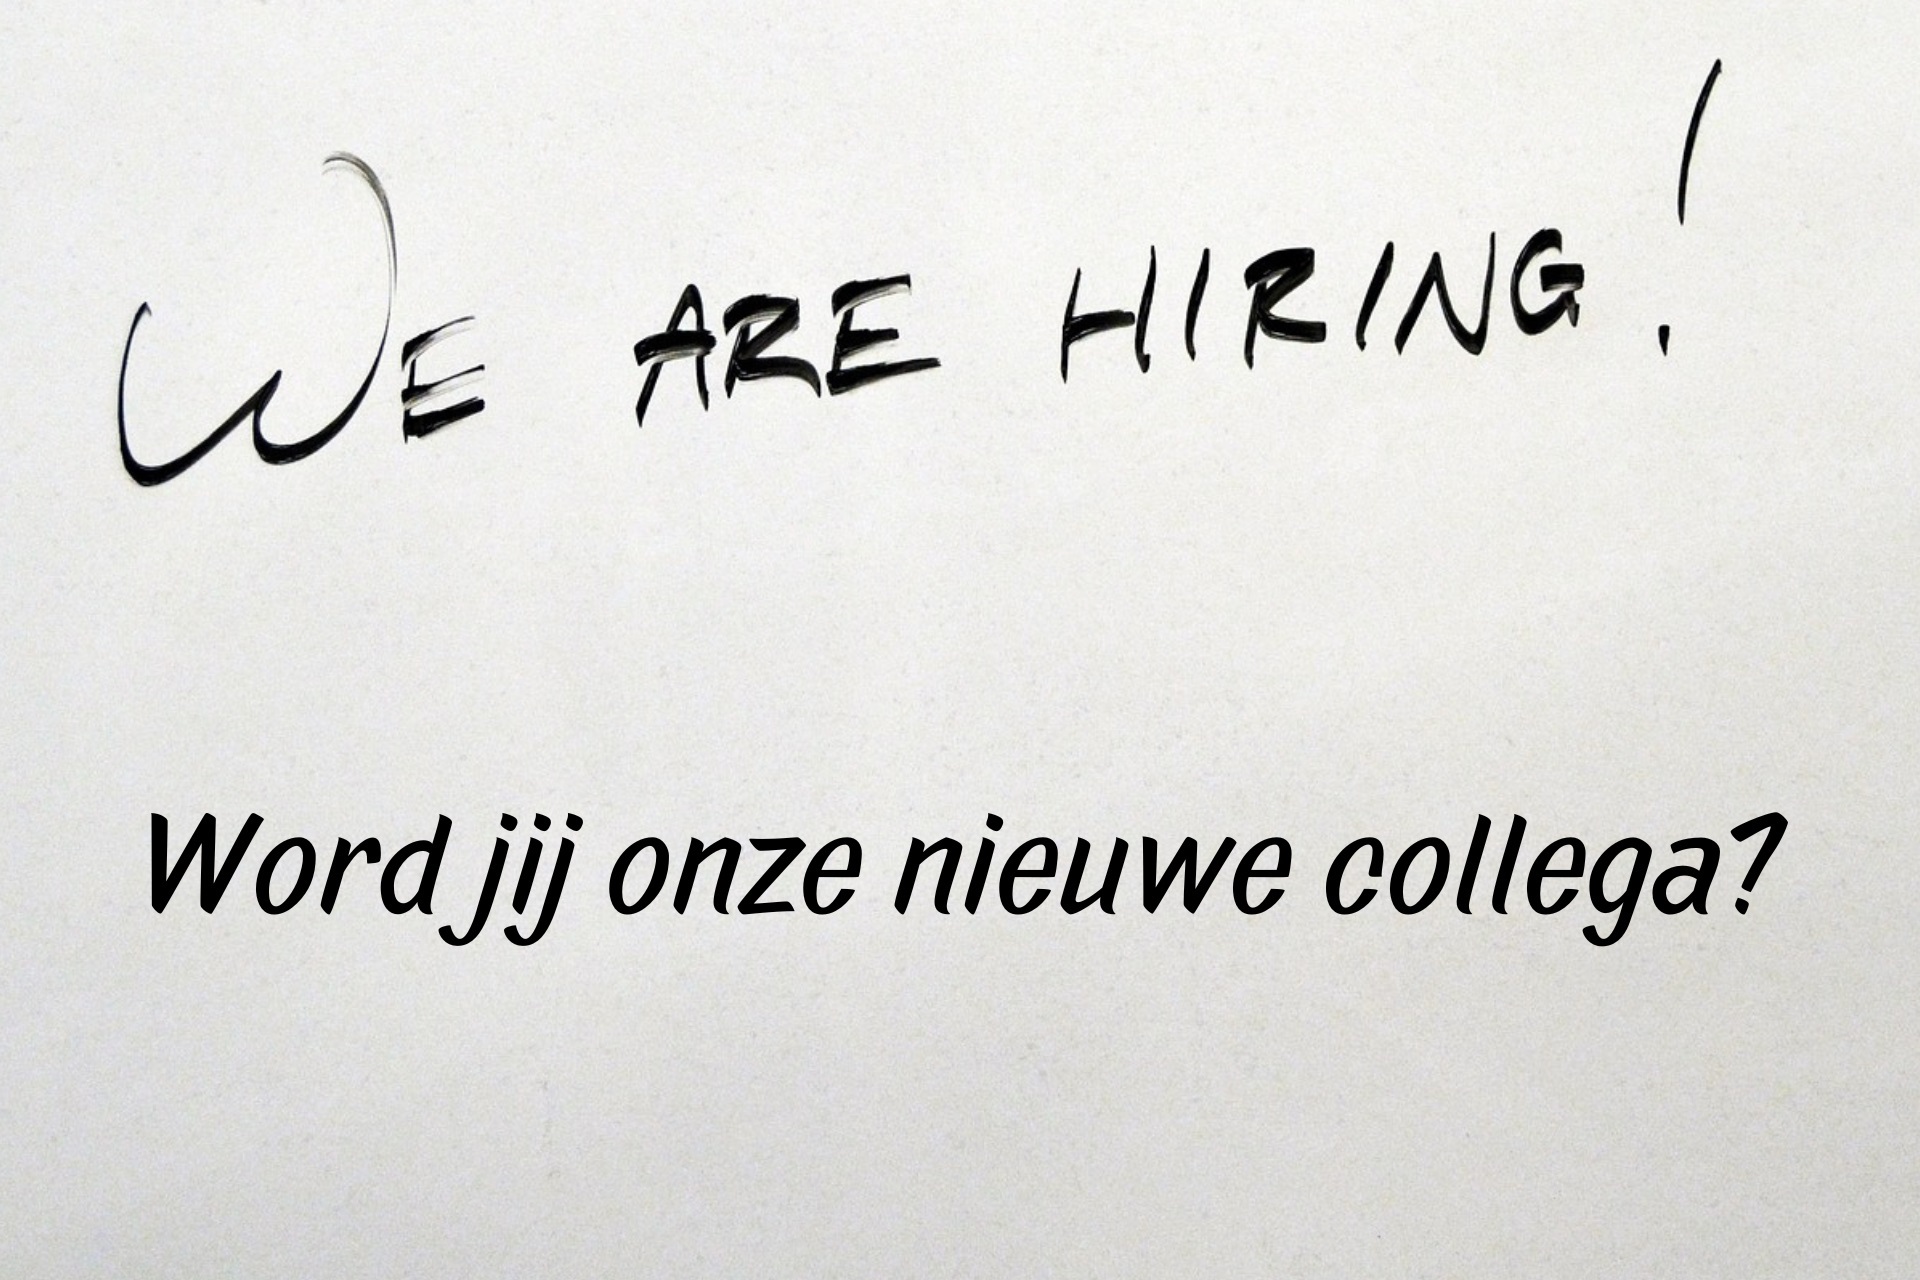 WE ARE HIRING!
Word jij onze nieuwe collega?